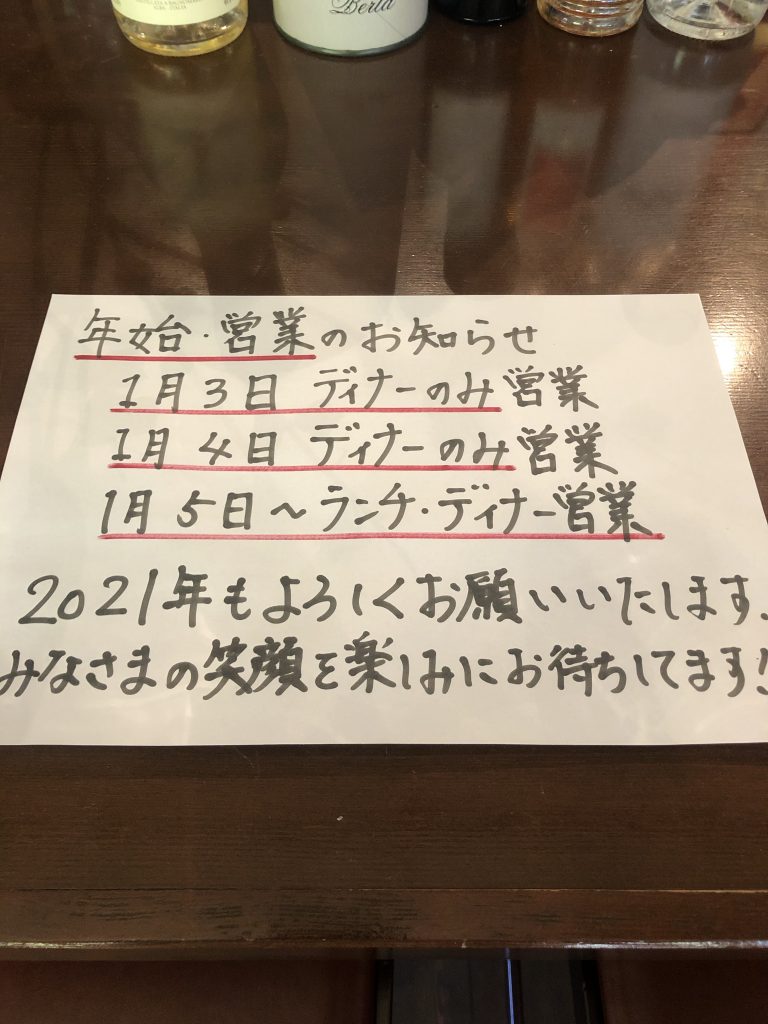 Berta
年始・営業のお知らせ
1月3日 ディナーのみ営業
1月4日 ディナーのみ営業
1月5日～ランチ・ディナー営業
2021年もよろしくお願いいたします。
みなさまの笑顔を楽しみにお待ちしてます!